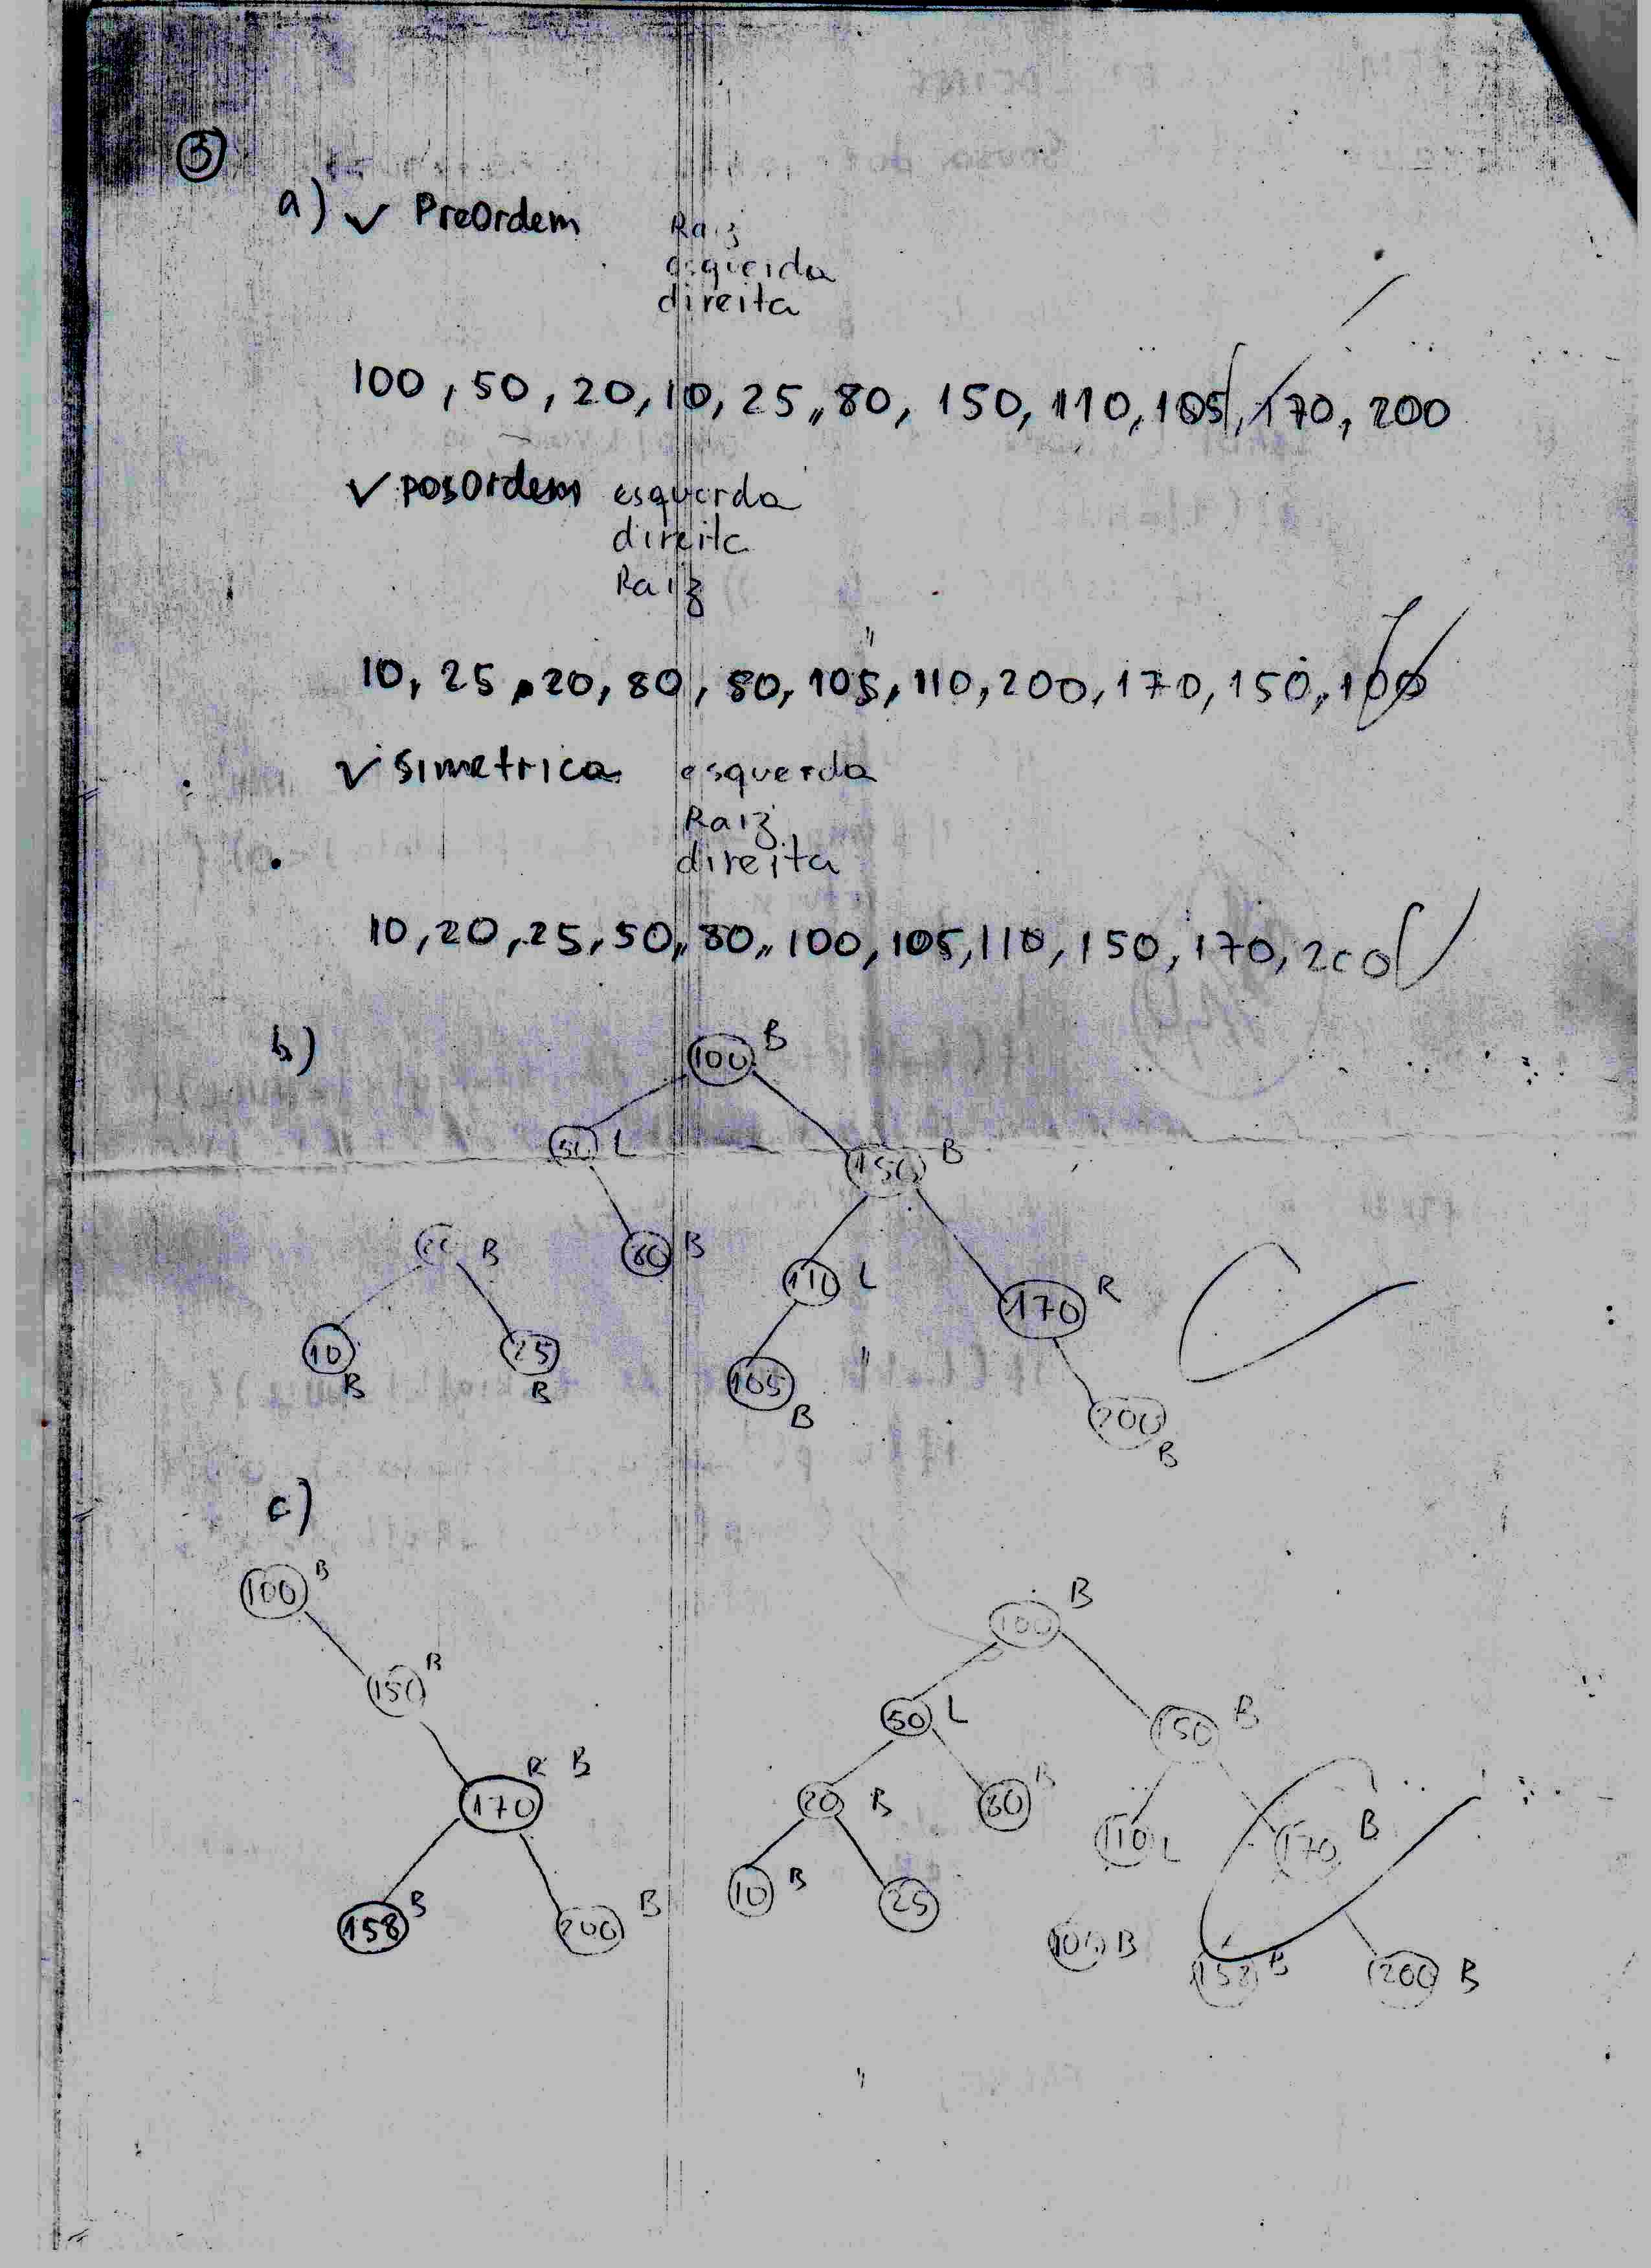 3
a) ✓ PreOrdem Raiz
esquerda
direita
100, 50, 20, 10, 25, 80, 150, 110, 105, 170, 200
✓ posOrdem esquerda
direita
Raiz
10, 25, 20, 80, 50, 105, 110, 200, 170, 150, 100
✓ simetrica esquerda
Raiz
direita
10, 20, 25, 50, 80, 100, 105, 110, 150, 170, 200
b)
100 B
50 L 150 B
B 80 B 110 L 170 R
10 B 25 B 105 B 200 B
c)
100 B
150 B
170 R B
158 B 200 B
100 B
50 L 150 B
20 B 80 B 110 L 170 B
10 B 25 105 B 158 B 200 B